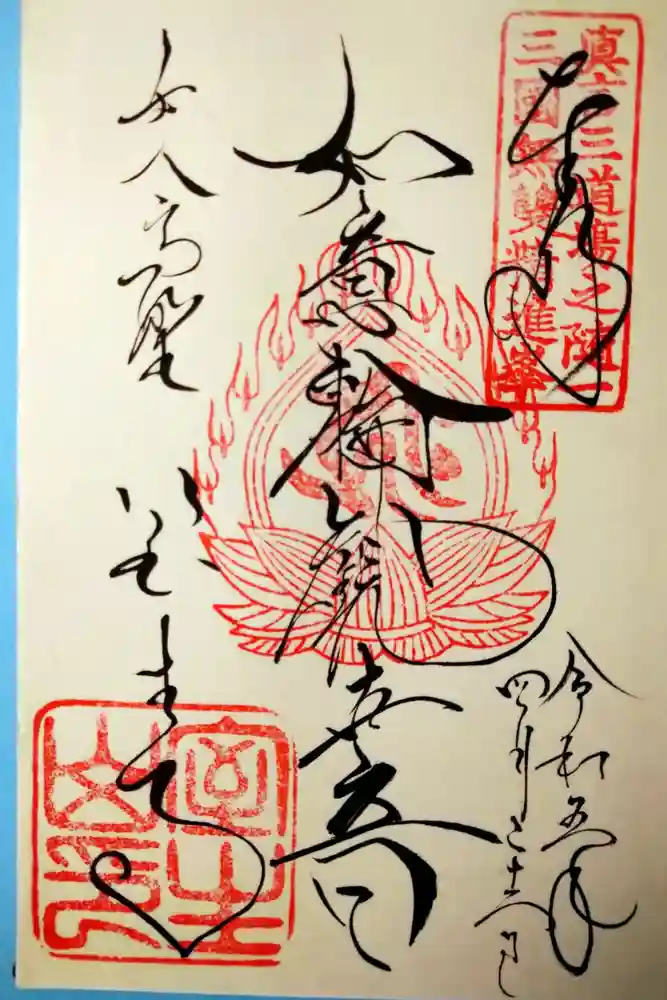 真言三道場之随一
三國無雙精進峯
奉拝
令和五年
四月二十
如意輪観世音
女人高野
室生寺